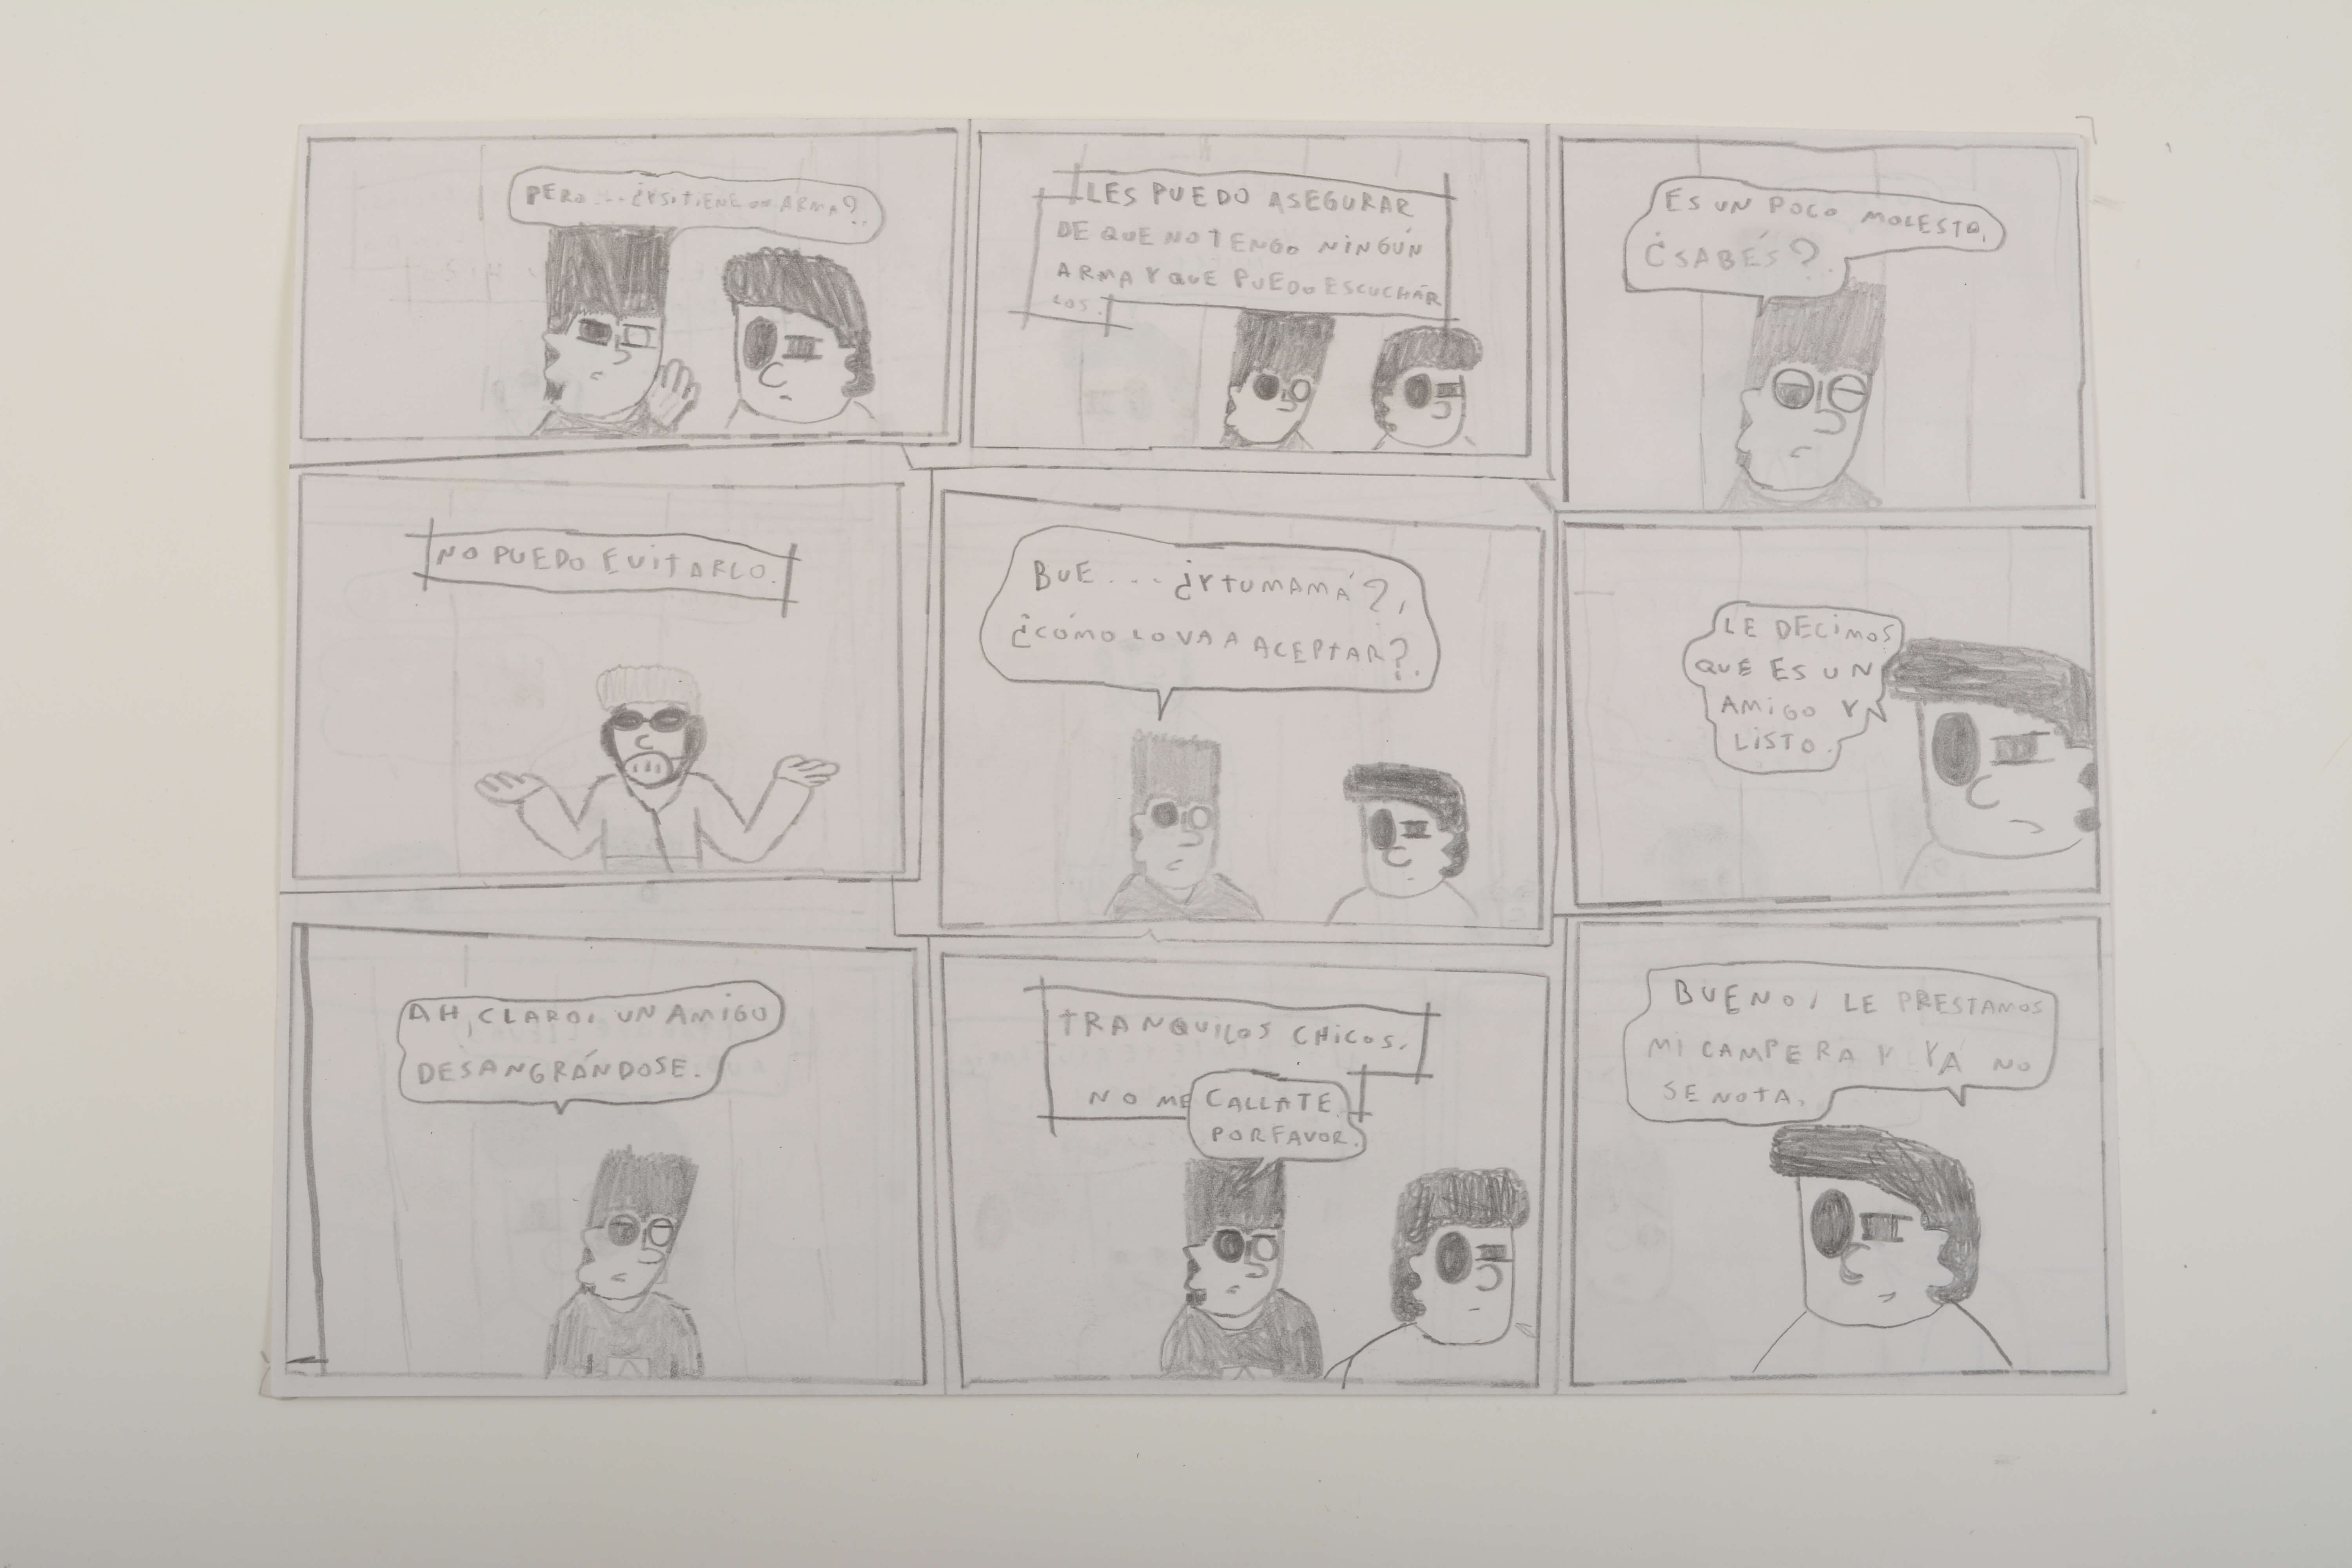 PERO... ¿Y SI TIENE UN ARMA?.
LES PUEDO ASEGURAR
DE QUE NO TENGO NINGÚN
ARMA Y QUE PUEDO ESCUCHAR
LOS.
ES UN POCO MOLESTO,
¿SABÉS?.
NO PUEDO EVITARLO.
BUE.... ¿Y TU MAMÁ?,
¿CÓMO LO VA A ACEPTAR?.
LE DECIMOS
QUE ES UN
AMIGO Y
LISTO.
AH, CLARO, UN AMIGO
DESANGRÁNDOSE.
TRANQUILOS CHICOS,
NO ME
CALLATE
POR FAVOR.
BUENO, LE PRESTAMOS
MI CAMPERA Y YA NO
SE NOTA.